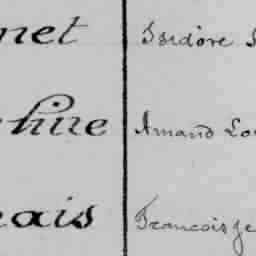 net Isidore
hire Amand Lou
eais Francois Je